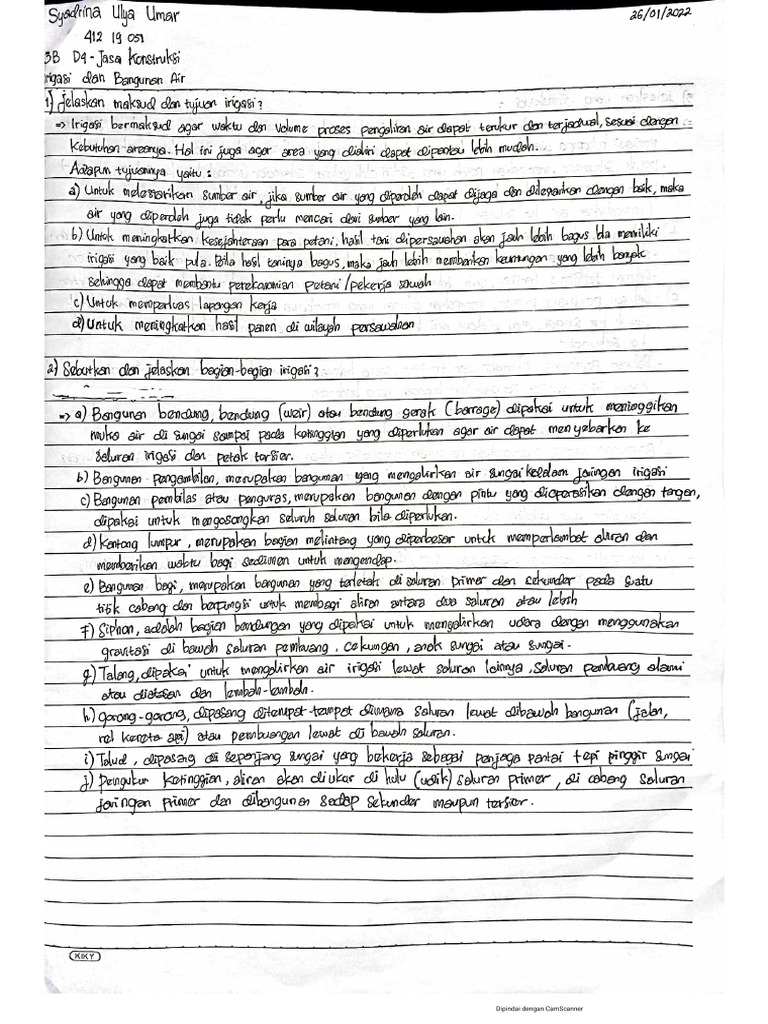 Syadrina Ulya Umar 26/01/2022
412 19 051
3B D4 - Jasa Konstruksi
rigasi dan Bangunan Air
1) Jelaskan maksud dan tujuan irigasi?
=> Irigasi bermaksud agar waktu dan volume proses pengaliran air dapat terukur dan terjadual, sesuai dengan
kebutuhan areanya. Hal ini juga agar area yang dialiri dapat dipantau lebih mudah.
Adapun tujuannya yaitu :
a) Untuk melestarikan sumber air, jika sumber air yang diperoleh dapat dijaga dan dilestarikan dengan baik, maka
air yang diperoleh juga tidak perlu mencari dari sumber yang lain.
b) Untuk meningkatkan kesejahteraan para petani, hasil tani dipersawahan akan jauh lebih bagus bla memiliki
irigasi yang baik pula. Bila hasil taninya bagus, maka jauh lebih memberikan keuntungan yang lebih banyak
sehingga dapat membantu perekonomian petani/pekerja sawah
c) Untuk memperluas lapangan kerja
d) Untuk meningkatkan hasil panen di wilayah persawahan
2) Sebutkan dan jelaskan bagian-bagian irigasi?
=> a) Bangunan bendung, bendung (weir) atau bendung gerak (barrage) dipakai untuk meninggikan
muka air di sungai sampai pada ketinggian yang diperlukan agar air dapat menyebarkan ke
saluran irigasi dan petak tersier.
b) Bangunan pengambilan, merupakan bangunan yang mengalirkan air sungai kedalam jaringan irigasi
c) Bangunan pembilas atau penguras, merupakan bangunan dengan pintu yang dioperasikan dengan tangan,
dipakai untuk mengosongkan seluruh saluran bila diperlukan.
d) Kantong lumpur, merupakan bagian melintang yang diperbesar untuk memperlambat aliran dan
memberikan waktu bagi sedimen untuk mengendap.
e) Bangunan bagi, merupakan bangunan yang terletak di saluran primer dan sekunder pada suatu
titik cabang dan berfungsi untuk membagi aliran antara dua saluran atau lebih
f) Siphon, adalah bagian bandungan yang dipakai untuk mengalirkan udara dengan menggunakan
gravitasi di bawah saluran pembuang, cekungan, anak sungai atau sungai.
g) Talang, dipakai untuk mengalirkan air irigasi lewat saluran lainnya, saluran pembuang alami
atau diatasan dan lembah-lembah.
h) gorong-gorong, dipasang ditempat-tempat dimana saluran lewat dibawah bangunan (jalan,
rel kereta api) atau pembuangan lewat di bawah saluran.
i) Talud, dipasang di sepanjang sungai yang bekerja sebagai penjaga pantai tepi pinggir sungai
j) Pengukur ketinggian, aliran akan diukur di hulu (udik) saluran primer, di cabang saluran
jaringan primer dan dibangunan sadap sekunder maupun tersier.
KIKY
Dipindai dengan CamScanner